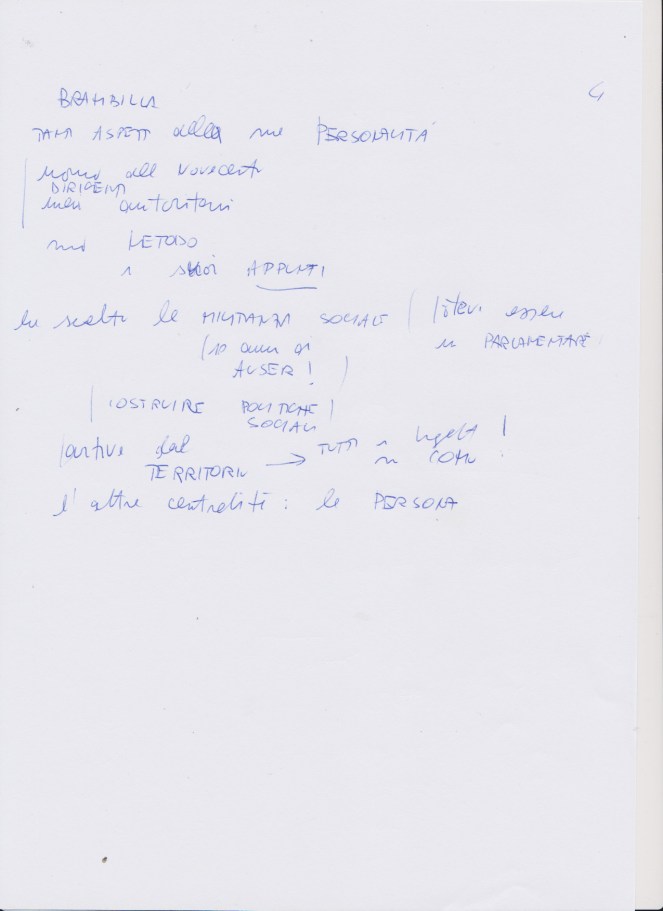 4
BRAMBILLA
TANTI ASPETTI della sua PERSONALITÀ
uomo del Novecento
DIRIGENTI
autoritari
suo METODO
i suoi APPUNTI
ha scelto la MILITANZA SOCIALE | Poteva essere
un PARLAMENTARE
(10 anni di
AUSER! )
| COSTRUIRE POLITICHE |
SOCIALI
partire dal
TERRITORIO → TUTTI i !
in COM
l'altra centralità: la PERSONA